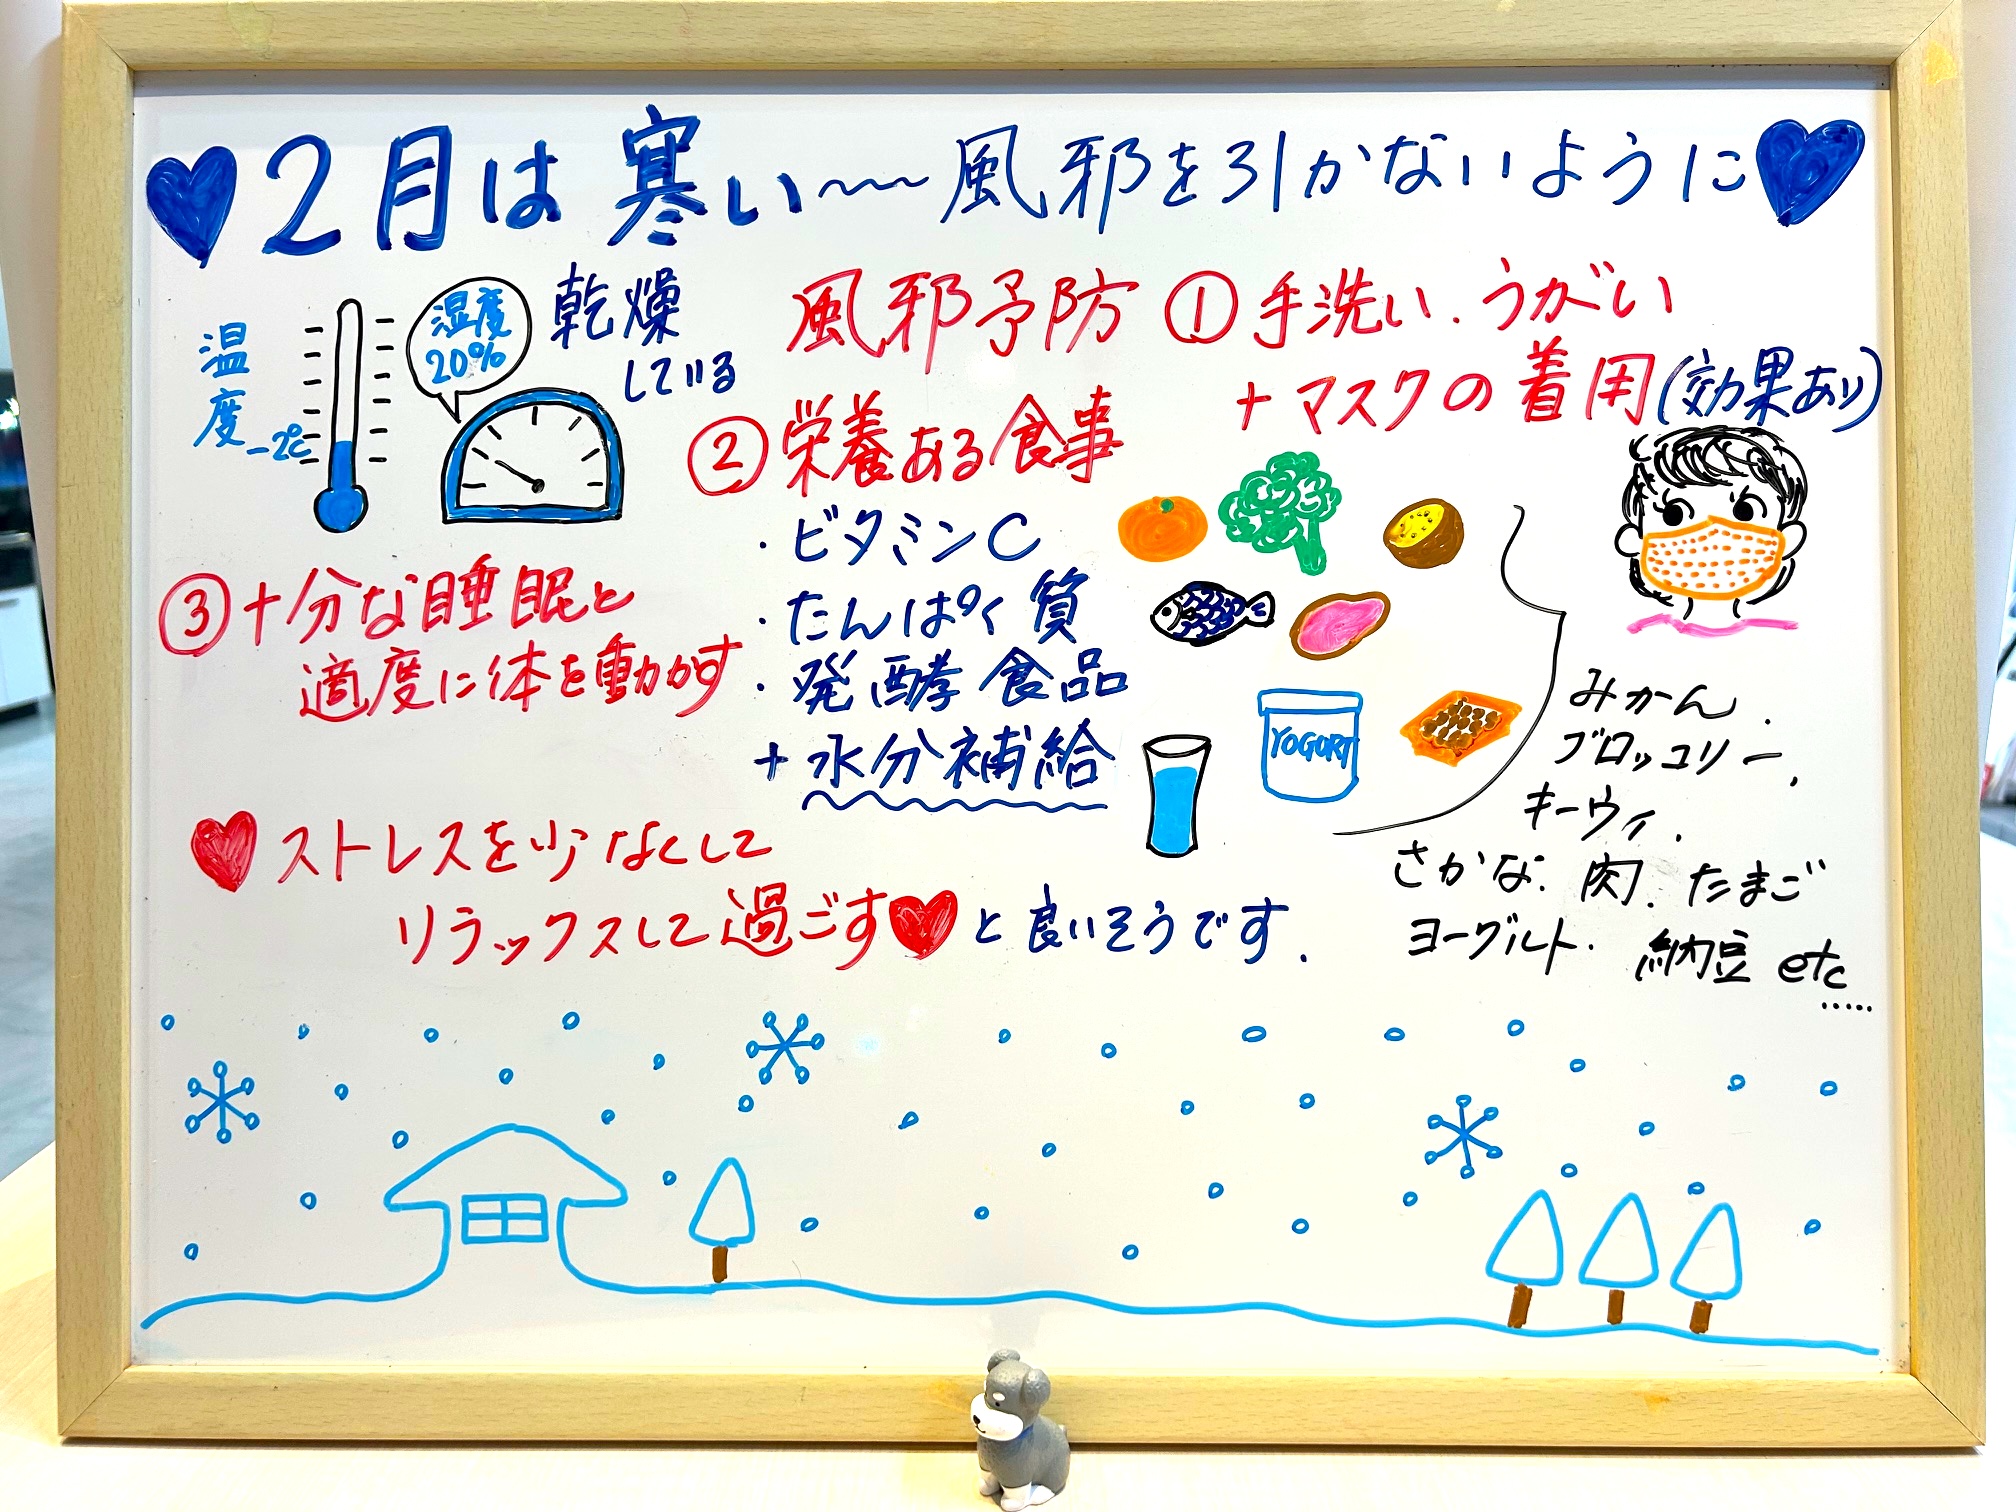 2月は寒い〜〜風邪を引かないように
温度
-2℃
湿度
20%
乾燥
している
風邪予防 ①手洗い.うがい
+マスクの着用(効果あり)
②栄養ある食事
・ビタミンC
・たんぱく質
・発酵食品
+水分補給
YOGORT
みかん.
ブロッコリー.
キーウィ.
さかな.肉.たまご
ヨーグルト.納豆 etc
.....
③十分な睡眠と
適度に体を動かす
ストレスを少なくして
リラックスして過ごす♥と良いそうです.